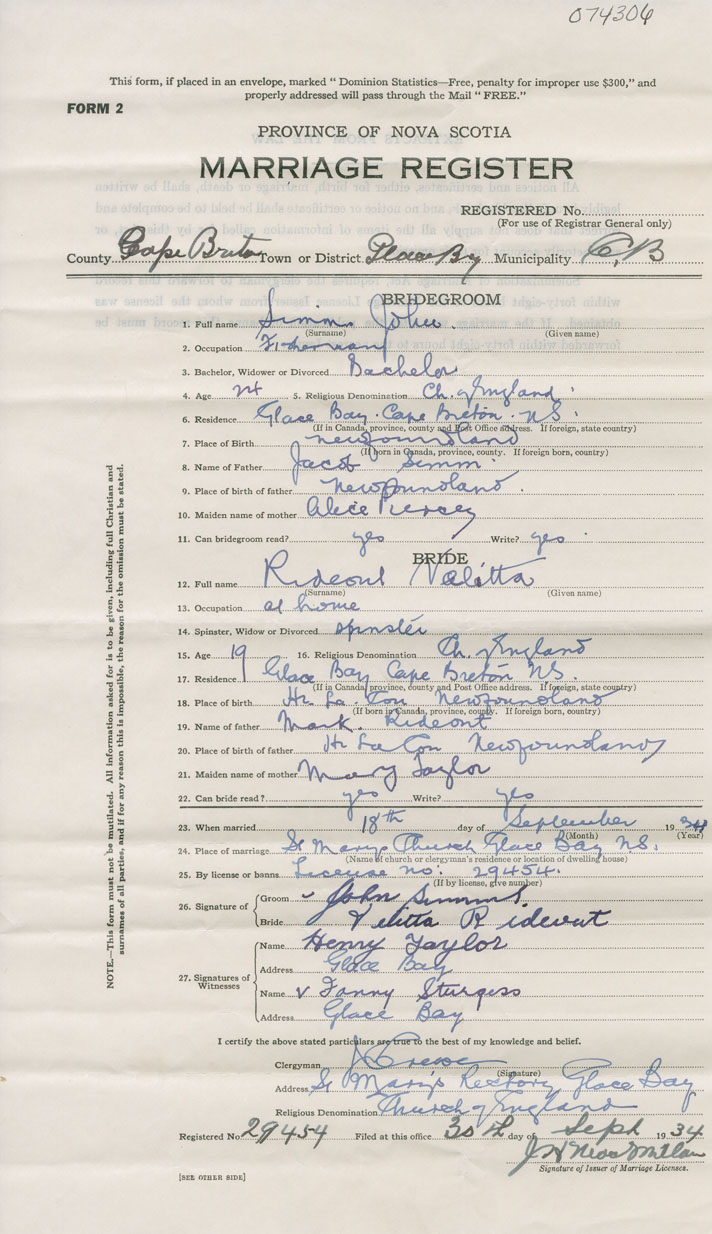 074306
This form, if placed in an envelope, marked “ Dominion Statistics—Free, penalty for improper use $300,” and
properly addressed will pass through the Mail “ FREE.”
FORM 2
PROVINCE OF NOVA SCOTIA
MARRIAGE REGISTER
REGISTERED No.
(For use of Registrar General only)
County Cape Breton Town or District Glace Bay Municipality C.B
BRIDEGROOM
1. Full name Simm John
(Surname) (Given name)
2. Occupation Fisherman
3. Bachelor, Widower or Divorced Bachelor
4. Age 24 5. Religious Denomination Ch. of England
6. Residence Glace Bay. Cape Breton. N.S.
(If in Canada, province, county and Post Office address. If foreign, state country)
7. Place of Birth Newfoundland
(If born in Canada, province, county. If foreign born, country)
8. Name of Father Jacob Simm
9. Place of birth of father Newfoundland.
10. Maiden name of mother Alice Piercey
11. Can bridegroom read? yes Write? yes
BRIDE
12. Full name Rideout
(Surname) (Given name)
13. Occupation at home
14. Spinster, Widow or Divorced spinster
15. Age 19 16. Religious Denomination Ch. of England
17. Residence Glace Bay Cape Breton N.S.
(If in Canada, province, county and Post Office address. If foreign, state country)
18. Place of birth Hr. La Con Newfoundland
(If born in Canada, province, county. If foreign born, country)
19. Name of father Mark. Rideout
20. Place of birth of father Hr La Con Newfoundland
21. Maiden name of mother Mary Taylor
22. Can bride read? yes Write? yes
23. When married 18th day of September 1934
(Month) (Year)
24. Place of marriage St Marys Church Glace Bay N.S.
(Name of church or clergyman's residence or location of dwelling house)
25. By license or banns License no: 29454.
(If by license, give number)
26. Signature of Groom John Simms
Bride Rideout
27. Signatures of Witnesses Name Henry Taylor
Address Glace Bay
Name v Fanny Sturgess
Address Glace Bay
I certify the above stated particulars are true to the best of my knowledge and belief.
Clergyman
(Signature)
Address St Marys Rectory Glace Bay
Religious Denomination Church of England
Registered No. 29454 Filed at this office 30th day of Sept 1934
Signature of Issuer of Marriage Licenses.
[SEE OTHER SIDE]
NOTE.—This form must not be mutilated. All information asked for is to be given, including full Christian and
surnames of all parties, and if for any reason this is impossible, the reason for the omission must be stated.